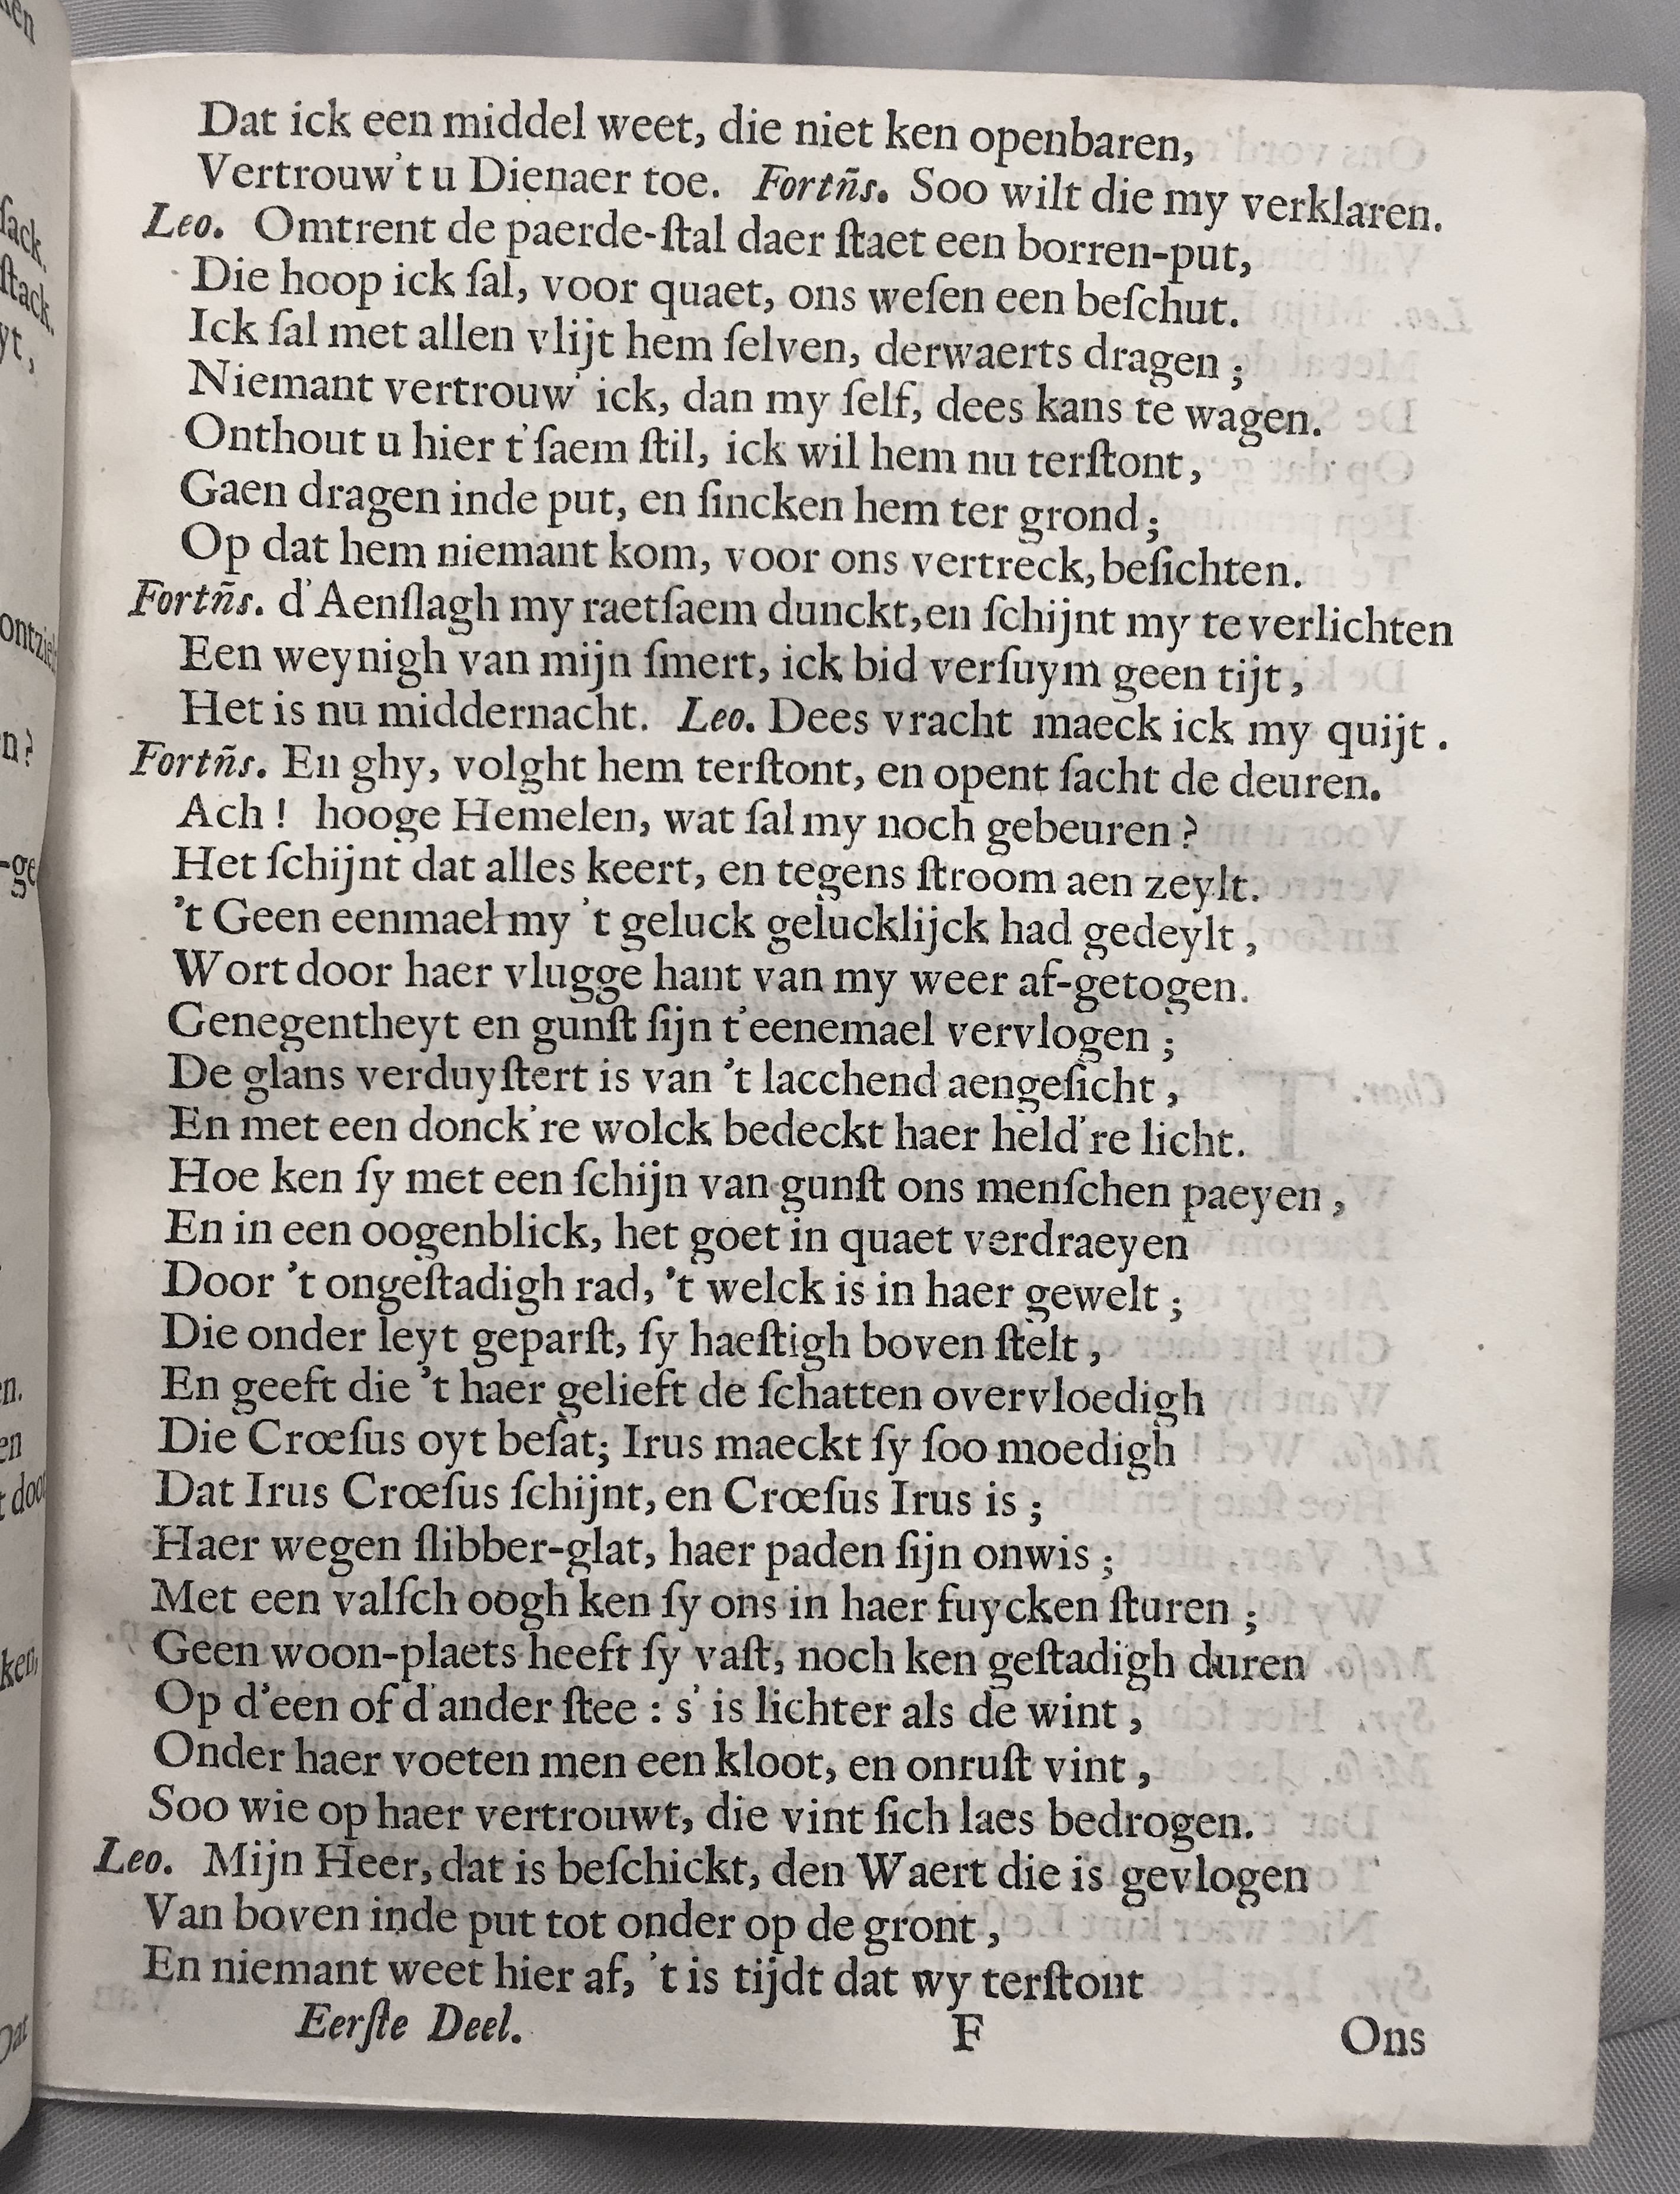 Dat ick een middel weet, die niet ken openbaren,
Vertrouw't u Dienaer toe. Fortñs. Soo wilt die my verklaren.
Leo. Omtrent de paerde-ſtal daer ſtaet een borren-put,
Die hoop ick ſal, voor quaet, ons weſen een beſchut.
Ick ſal met allen vlijt hem ſelven, derwaerts dragen;
Niemant vertrouw' ick, dan my ſelf, dees kans te wagen.
Onthout u hier t'ſaem ſtil, ick wil hem nu terſtont,
Gaen dragen inde put, en ſincken hem ter grond;
Op dat hem niemant kom, voor ons vertreck, beſichten.
Fortñs. d'Aenſlagh my raetſaem dunckt, en ſchijnt my te verlichten
Een weynigh van mijn ſmert, ick bid verſuym geen tijt,
Het is nu middernacht. Leo. Dees vracht maeck ick my quijt.
Fortñs. En ghy, volght hem terſtont, en opent ſacht de deuren.
Ach! hooge Hemelen, wat ſal my noch gebeuren?
Het ſchijnt dat alles keert, en tegens ſtroom aen zeylt.
't Geen eenmael my 't geluck gelucklijck had gedeylt,
Wort door haer vlugge hant van my weer af-getogen.
Genegentheyt en gunſt ſijn t'eenemael vervlogen;
De glans verduyſtert is van 't lacchend aengeſicht,
En met een donck're wolck bedeckt haer held're licht.
Hoe ken ſy met een ſchijn van gunſt ons menſchen paeyen,
En in een oogenblick, het goet in quaet verdraeyen
Door 't ongeſtadigh rad, 't welck is in haer gewelt;
Die onder leyt geparſt, ſy haeſtigh boven ſtelt,
En geeft die 't haer gelieft de ſchatten overvloedigh
Die Crœſus oyt beſat; Irus maeckt ſy ſoo moedigh
Dat Irus Crœſus ſchijnt, en Crœſus Irus is;
Haer wegen ſlibber-glat, haer paden ſijn onwis;
Met een valſch oogh ken ſy ons in haer fuycken ſturen;
Geen woon-plaets heeft ſy vaſt, noch ken geſtadigh duren
Op d'een of d'ander ſtee: s' is lichter als de wint,
Onder haer voeten men een kloot, en onruſt vint,
Soo wie op haer vertrouwt, die vint ſich laes bedrogen.
Leo. Mijn Heer, dat is beſchickt, den Waert die is gevlogen
Van boven inde put tot onder op de gront,
En niemant weet hier af, 't is tijdt dat wy terſtont
Eerſte Deel. F Ons